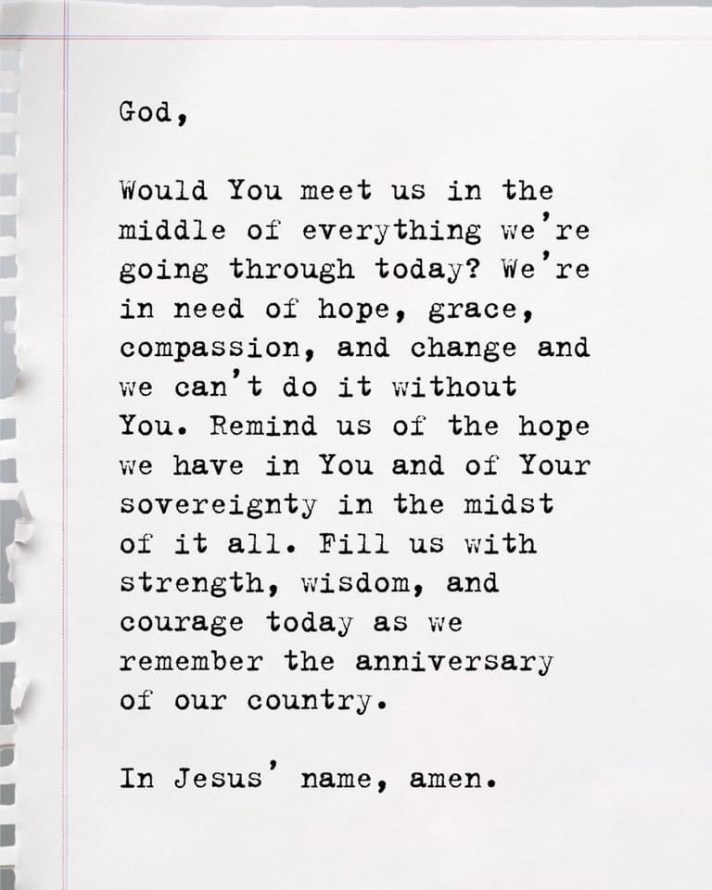 God,
Would You meet us in the
middle of everything we're
going through today? We're
in need of hope, grace,
compassion, and change and
we can't do it without
You. Remind us of the hope
we have in You and of Your
sovereignty in the midst
of it all. Fill us with
strength, wisdom, and
courage today as we
remember the anniversary
of our country.
In Jesus' name, amen.